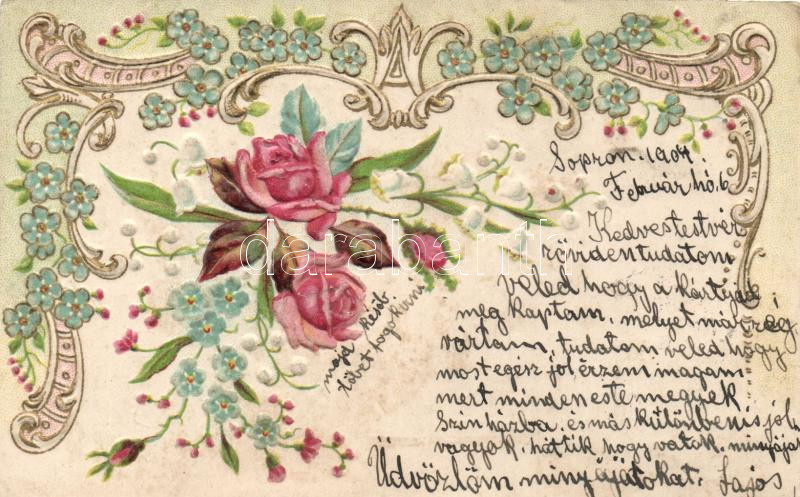 Sopron. 1904.
Február hó. 6
Kedvestestvér
rövidentudatom
veled hogy a kártyád
meg kaptam, melyet már rég
vártam, tudatom veled hogy
mostegesz jól, érzem magam
mert mindeneste megyek
Szinházba, és más különbenis jól
vagyok, háttik hogy vatok. minyájan
Üdvözlöm minyájatokat. Lajos
majd késöb
lövet fogokirni
darabanth